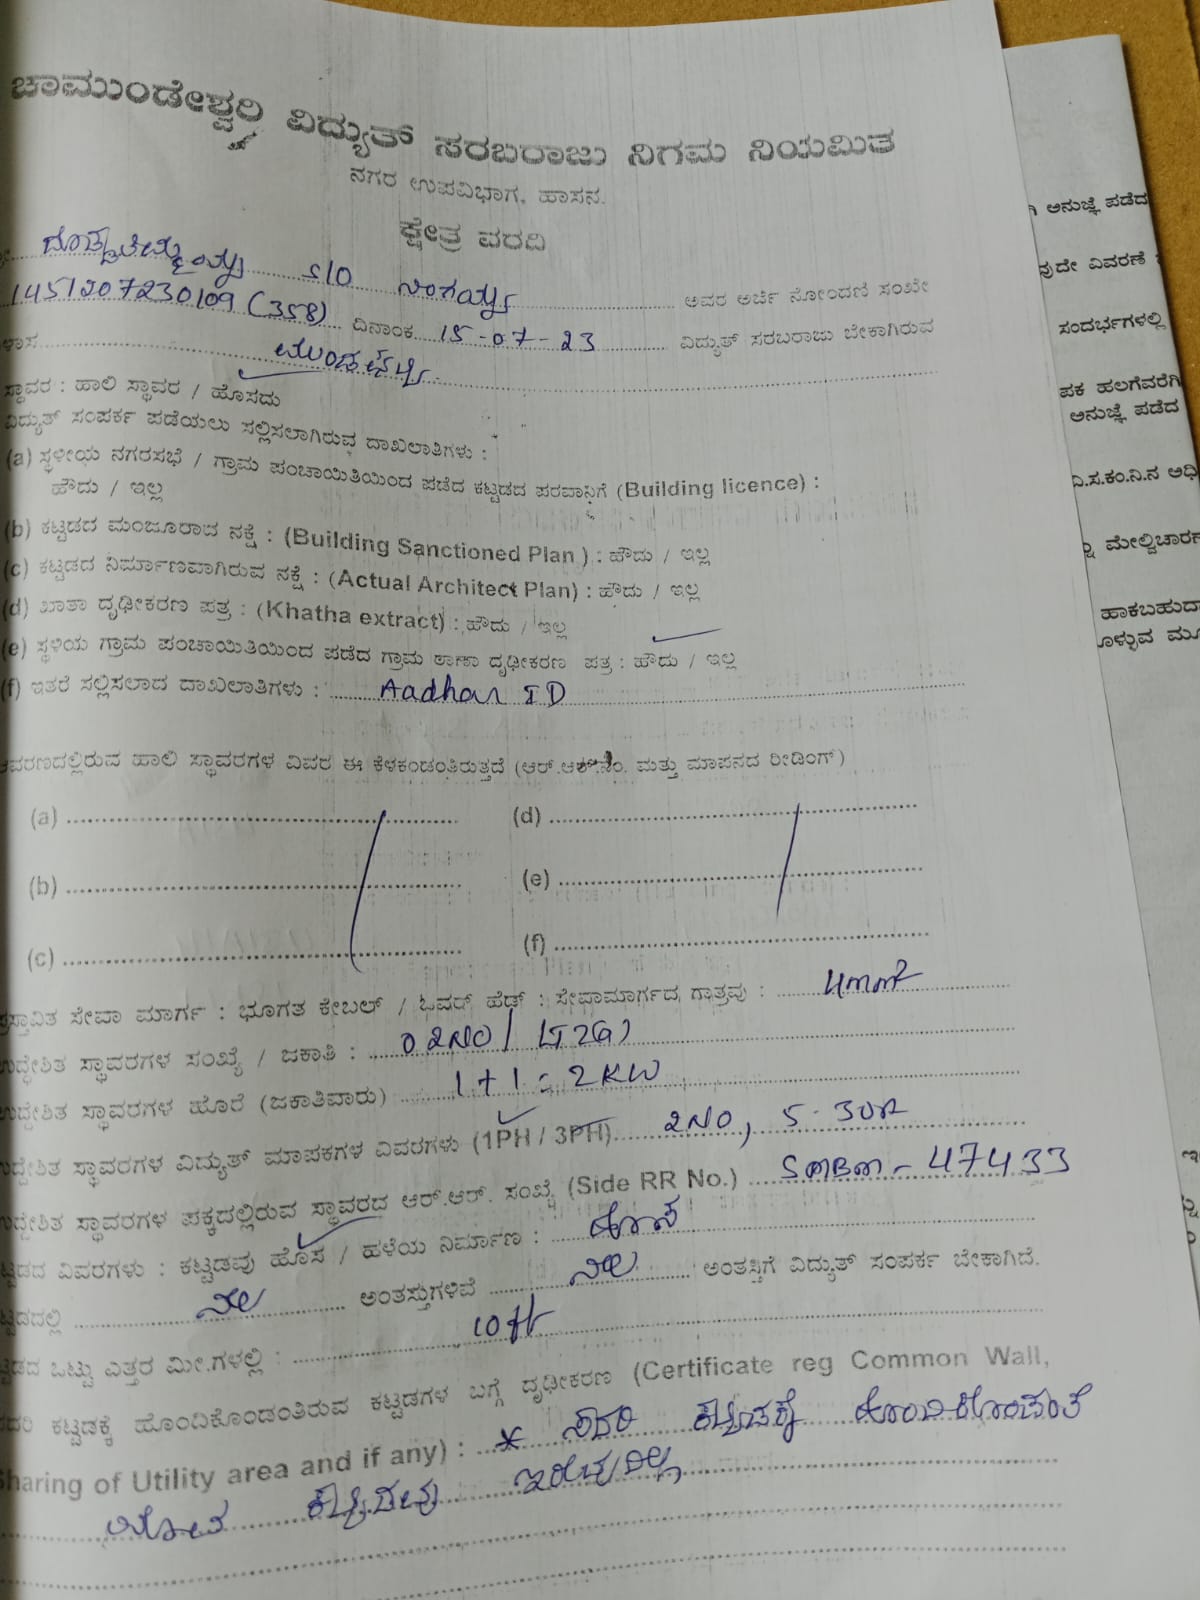 ಚಾಮುಂಡೇಶ್ವರಿ ವಿದ್ಯುತ್ ಸರಬರಾಜು ನಿಗಮ ನಿಯಮಿತ
ನಗರ ಉಪವಿಭಾಗ, ಹಾಸನ.
ಕ್ಷೇತ್ರ ವರದಿ
S/O ನಿಂಗಯ್ಯ ಅವರ ಅರ್ಜಿ ನೋಂದಣಿ ಸಂಖ್ಯೇ
1451207230109 (358) ದಿನಾಂಕ 15-07-23 ವಿದ್ಯುತ್ ಸರಬರಾಜು ಬೇಕಾಗಿರುವ
ಸ್ಥಾವರ : ಹಾಲಿ ಸ್ಥಾವರ / ಹೊಸದು
ವಿದ್ಯುತ್ ಸಂಪರ್ಕ ಪಡೆಯಲು ಸಲ್ಲಿಸಲಾಗಿರುವ ದಾಖಲಾತಿಗಳು :
(a) ಸ್ಥಳೀಯ ನಗರಸಭೆ / ಗ್ರಾಮ ಪಂಚಾಯಿತಿಯಿಂದ ಪಡೆದ ಕಟ್ಟಡದ ಪರವಾನಿಗೆ (Building licence) :
ಹೌದು / ಇಲ್ಲ
(b) ಕಟ್ಟಡದ ಮಂಜೂರಾದ ನಕ್ಷೆ : (Building Sanctioned Plan ) : ಹೌದು / ಇಲ್ಲ
(c) ಕಟ್ಟಡದ ನಿರ್ಮಾಣವಾಗಿರುವ ನಕ್ಷೆ : (Actual Architect Plan) : ಹೌದು / ಇಲ್ಲ
(d) ಖಾತಾ ದೃಢೀಕರಣ ಪತ್ರ : (Khatha extract) : ಹೌದು / ಇಲ್ಲ
(e) ಸ್ಥಳಿಯ ಗ್ರಾಮ ಪಂಚಾಯಿತಿಯಿಂದ ಪಡೆದ ಗ್ರಾಮ ಠಾಣಾ ದೃಢೀಕರಣ ಪತ್ರ : ಹೌದು / ಇಲ್ಲ
(f) ಇತರೆ ಸಲ್ಲಿಸಲಾದ ದಾಖಲಾತಿಗಳು : Aadhar ID
ಆವರಣದಲ್ಲಿರುವ ಹಾಲಿ ಸ್ಥಾವರಗಳ ವಿವರ ಈ ಕೆಳಕಂಡಂತಿರುತ್ತದೆ (ಆರ್.ಆರ್.ನಂ. ಮತ್ತು ಮಾಪನದ ರೀಡಿಂಗ್)
(a) (d)
(b) (e)
(c) (f)
ಸೇವಾ ಮಾರ್ಗ : ಭೂಗತ ಕೇಬಲ್ / ಓವರ್ ಹೆಡ್ : ಸೇವಾಮಾರ್ಗದ ಗಾತ್ರವು : 4mm²
ಸ್ಥಾವರಗಳ ಸಂಖ್ಯೆ / ಜಕಾತಿ : 02NO / LT2(a)
ಸ್ಥಾವರಗಳ ಹೊರೆ (ಜಕಾತಿವಾರು) 1+1 = 2KW
ಸ್ಥಾವರಗಳ ವಿದ್ಯುತ್ ಮಾಪಕಗಳ ವಿವರಗಳು (1PH / 3PH) 2NO, 5-30A
ಸ್ಥಾವರಗಳ ಪಕ್ಕದಲ್ಲಿರುವ ಸ್ಥಾವರದ ಆರ್.ಆರ್. ಸಂಖ್ಯೆ (Side RR No.) SMBM-47433
ವಿವರಗಳು : ಕಟ್ಟಡವು ಹೊಸ / ಹಳೆಯ ನಿರ್ಮಾಣ : ಹೊಸ
ನೆಲ ಅಂತಸ್ತುಗಳಿವೆ ನೆಲ ಅಂತಸ್ತಿಗೆ ವಿದ್ಯುತ್ ಸಂಪರ್ಕ ಬೇಕಾಗಿದೆ.
ಒಟ್ಟು ಎತ್ತರ ಮೀ.ಗಳಲ್ಲಿ : 10ft
ಕಟ್ಟಡಕ್ಕೆ ಹೊಂದಿಕೊಂಡಂತಿರುವ ಕಟ್ಟಡಗಳ ಬಗ್ಗೆ ದೃಢೀಕರಣ (Certificate reg Common Wall,
Sharing of Utility area and if any) : * ಸದರಿ ಕಟ್ಟಡಕ್ಕೆ ಹೊಂದಿಕೊಂಡಂತೆ
ಯಾವ ಕಟ್ಟಡವು ಇರುವುದಿಲ್ಲ
ಅನುಜ್ಞೆ ಪಡೆದ
ವಿವರಣೆ
ಸಂದರ್ಭಗಳಲ್ಲಿ
ಹಲಗೆವರೆಗಿ
ಅನುಜ್ಞೆ ಪಡೆದ
ವಿ.ಸ.ಕಂ.ನಿ.ನ ಅಧಿ
ಮೇಲ್ವಿಚಾರ
ಹಾಕಬಹುದಾ